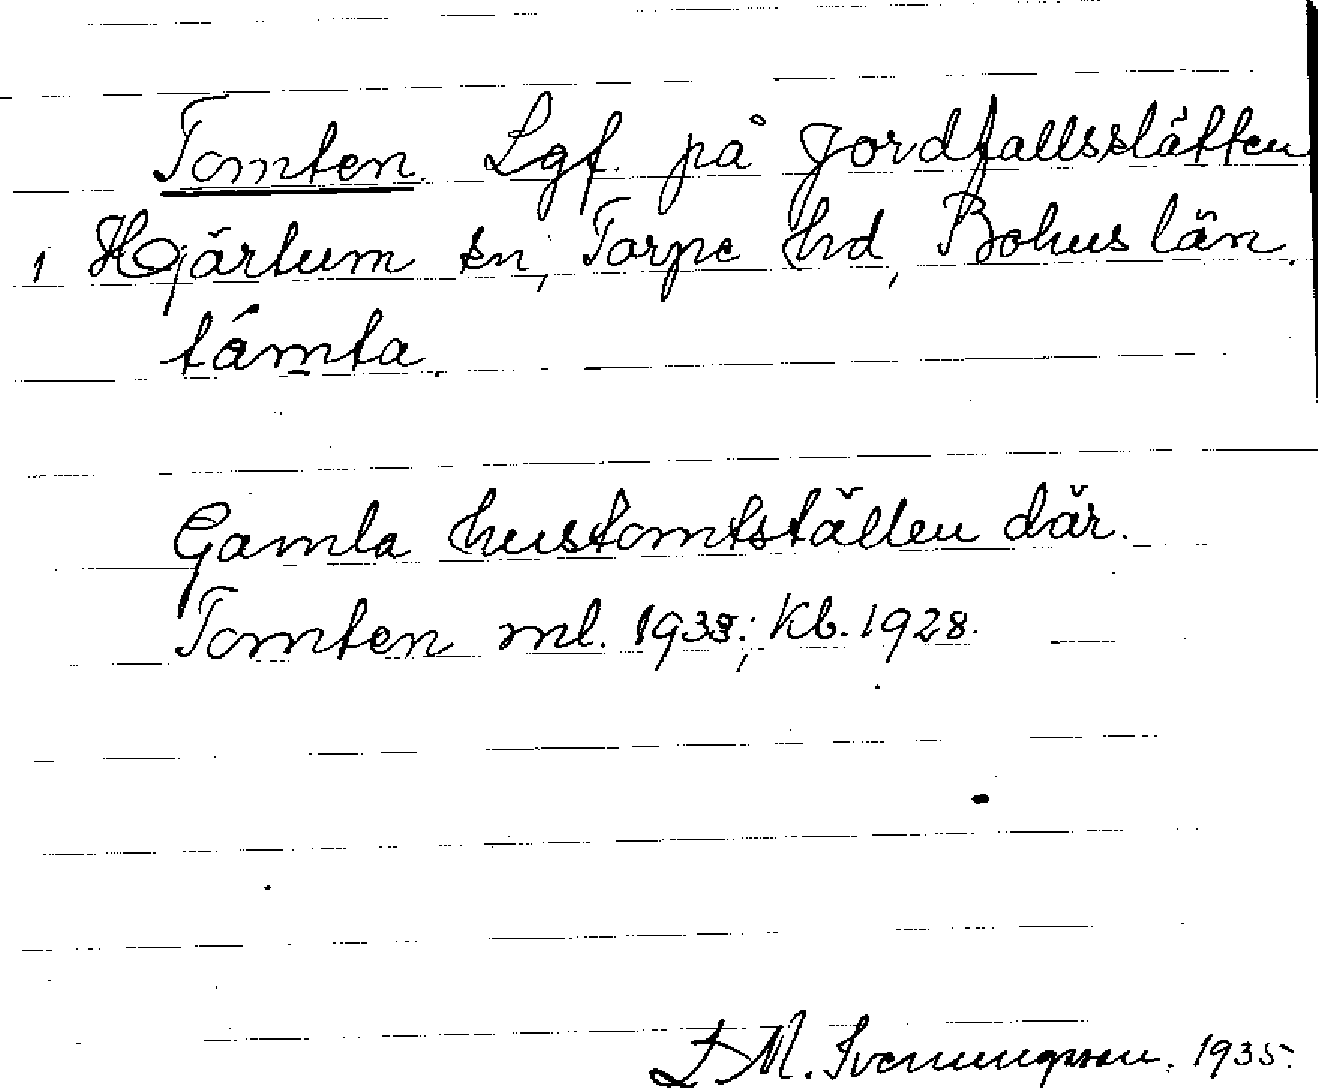 Tomten. Lgf. på Jordfallsslätten
i Hjärtum sn, Torpe hd, Bohus län.
támta.
Gamla hustomtställen där.
Tomten ml. 1933; Kb. 1928.
L M. Svenungsson. 1935.